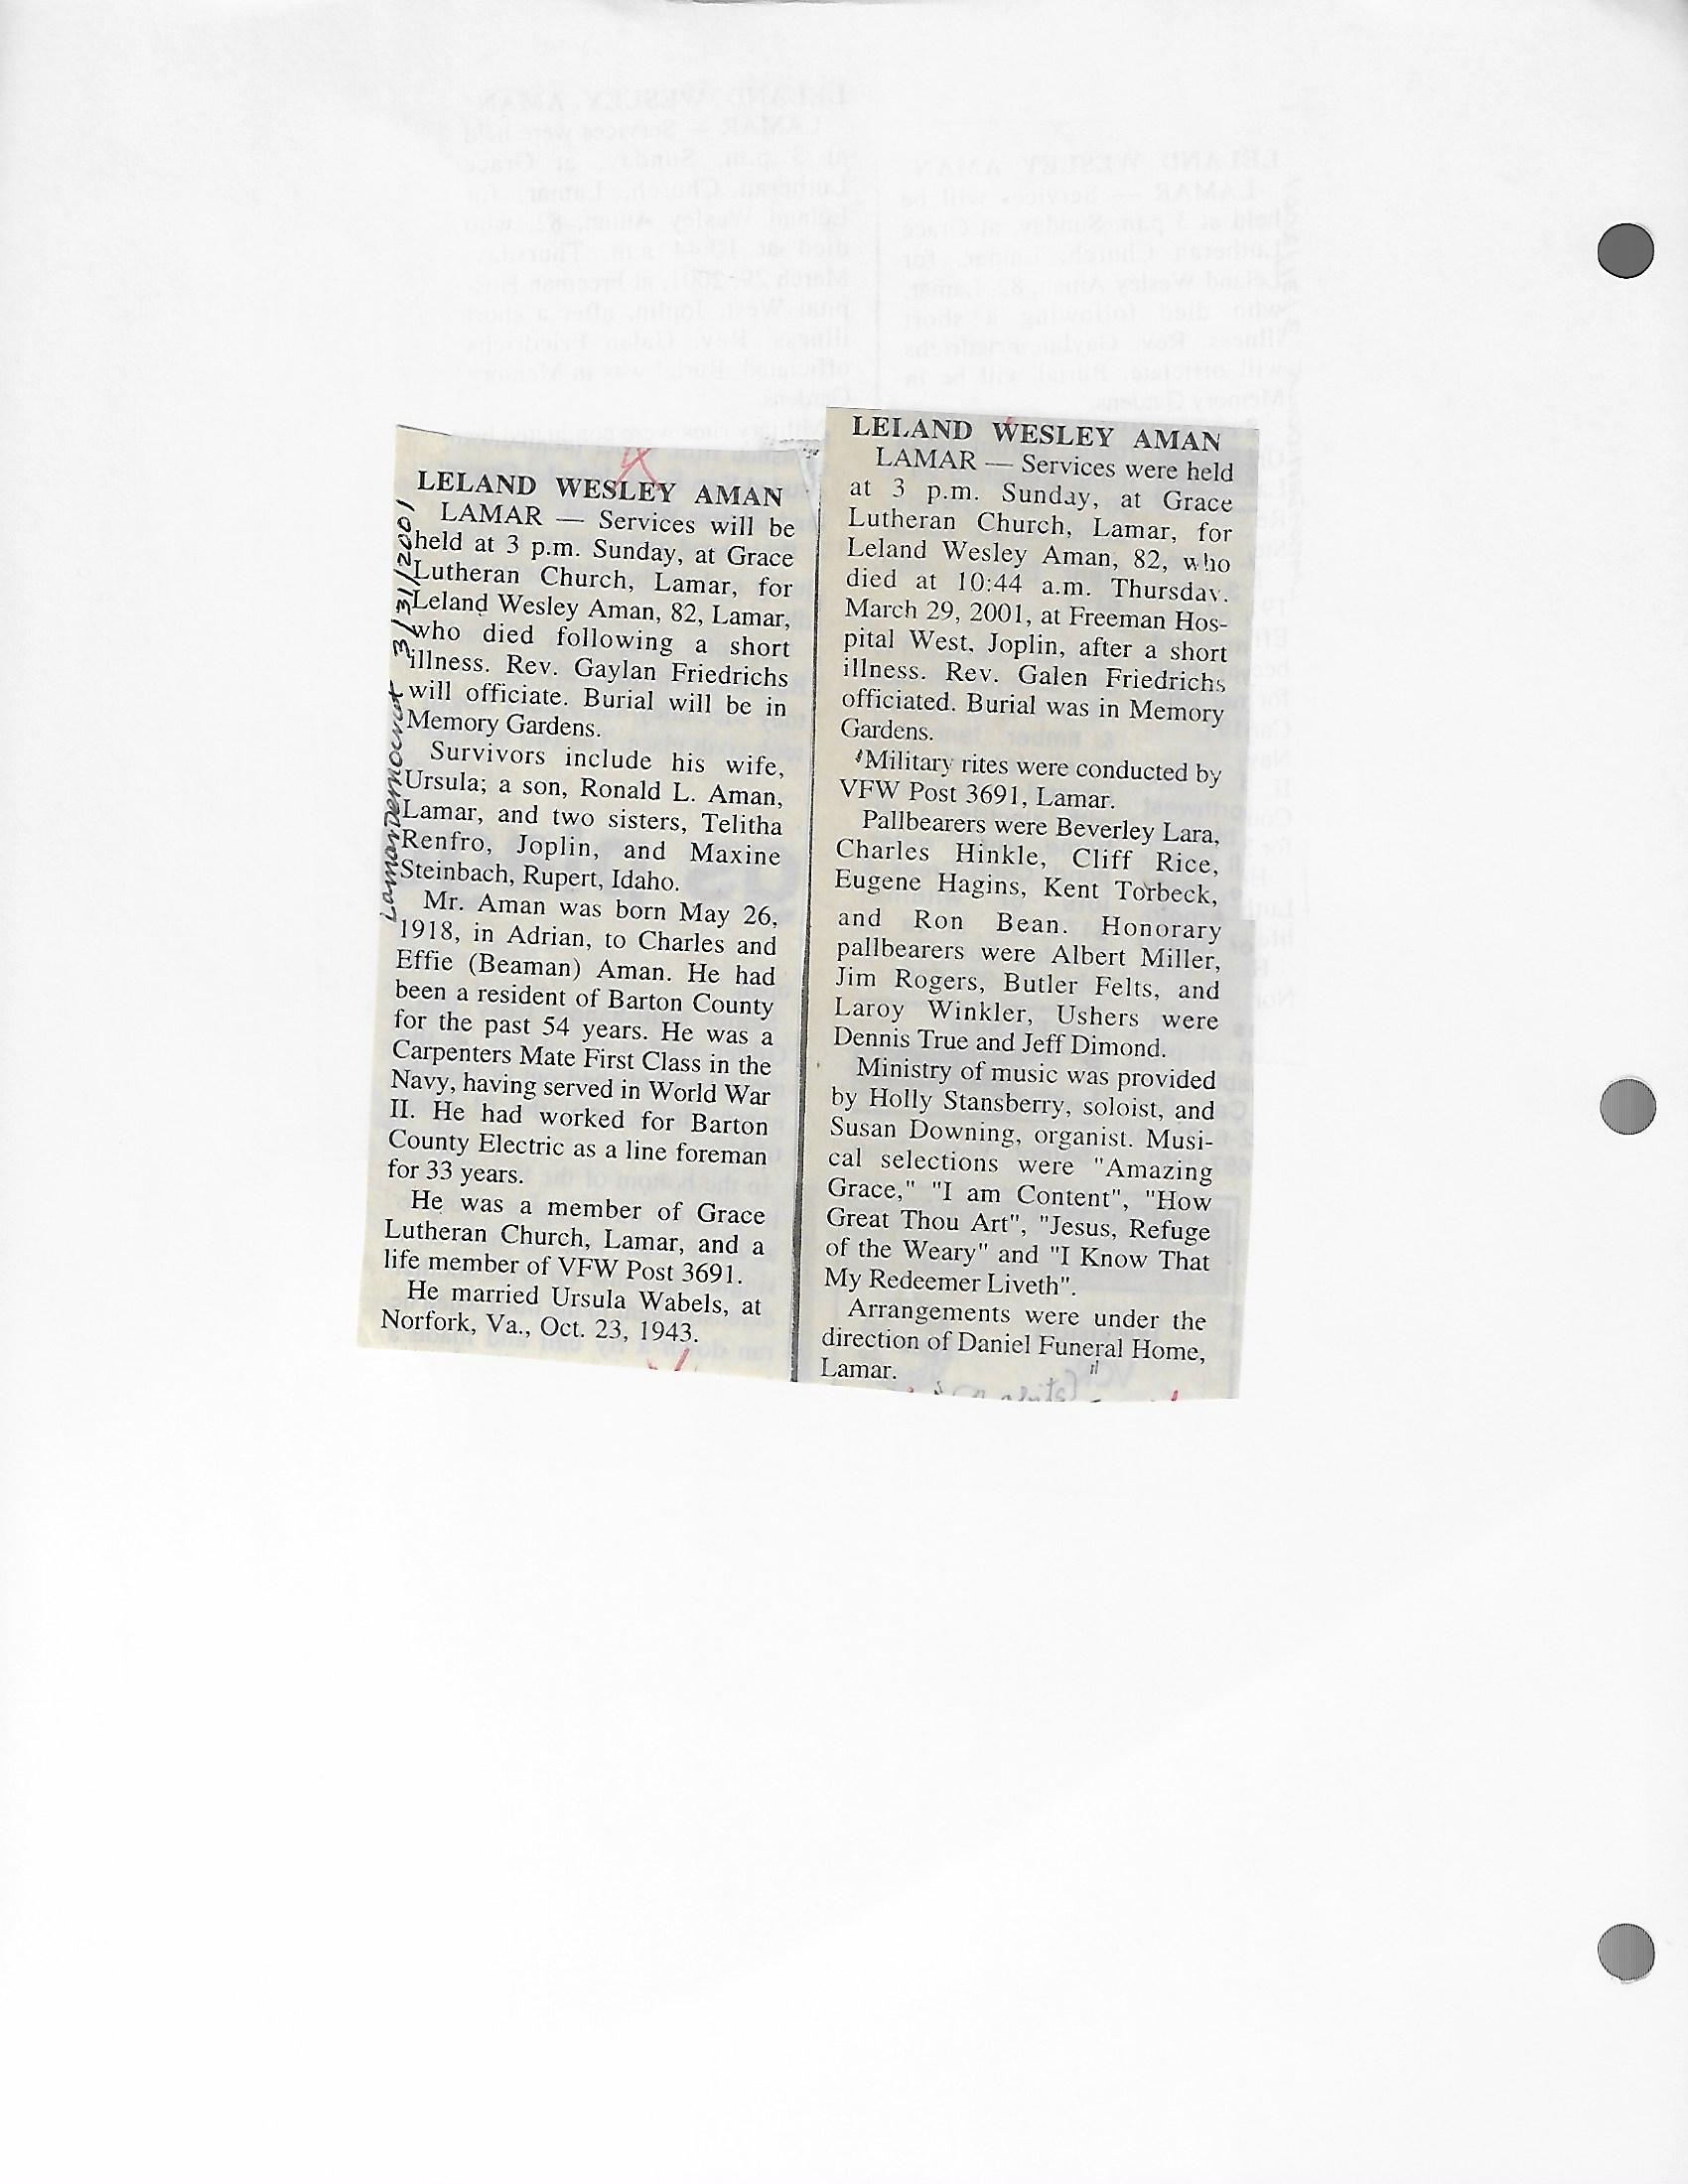 LELAND WESLEY AMAN
LAMAR — Services will be
held at 3 p.m. Sunday, at Grace
Lutheran Church, Lamar, for
Leland Wesley Aman, 82, Lamar,
who died following a short
illness. Rev. Gaylan Friedrichs
will officiate. Burial will be in
Memory Gardens.
Survivors include his wife,
Ursula; a son, Ronald L. Aman,
Lamar, and two sisters, Telitha
Renfro, Joplin, and Maxine
Steinbach, Rupert, Idaho.
Mr. Aman was born May 26,
1918, in Adrian, to Charles and
Effie (Beaman) Aman. He had
been a resident of Barton County
for the past 54 years. He was a
Carpenters Mate First Class in the
Navy, having served in World War
II. He had worked for Barton
County Electric as a line foreman
for 33 years.
He was a member of Grace
Lutheran Church, Lamar, and a
life member of VFW Post 3691.
He married Ursula Wabels, at
Norfork, Va., Oct. 23, 1943.
Lamar Democrat 3/31/2001
LELAND WESLEY AMAN
LAMAR — Services were held
at 3 p.m. Sunday, at Grace
Lutheran Church, Lamar, for
Leland Wesley Aman, 82, who
died at 10:44 a.m. Thursday.
March 29, 2001, at Freeman Hos-
pital West, Joplin, after a short
illness. Rev. Galen Friedrichs
officiated. Burial was in Memory
Gardens.
Military rites were conducted by
VFW Post 3691, Lamar.
Pallbearers were Beverley Lara,
Charles Hinkle, Cliff Rice,
Eugene Hagins, Kent Torbeck,
and Ron Bean. Honorary
pallbearers were Albert Miller,
Jim Rogers, Butler Felts, and
Laroy Winkler, Ushers were
Dennis True and Jeff Dimond.
Ministry of music was provided
by Holly Stansberry, soloist, and
Susan Downing, organist. Musi-
cal selections were "Amazing
Grace," "I am Content", "How
Great Thou Art", "Jesus, Refuge
of the Weary" and "I Know That
My Redeemer Liveth".
Arrangements were under the
direction of Daniel Funeral Home,
Lamar.